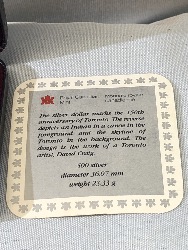 Royal Canadian Monnaie royale
Mint canadienne
The silver dollar marks the 150th
anniversary of Toronto. The reverse
depicts an Indian in a canoe in the
foreground and the skyline of
Toronto in the background. The
design is the work of a Toronto
artist, David Craig.
500 silver
diameter 36.07 mm
weight 23.33 g